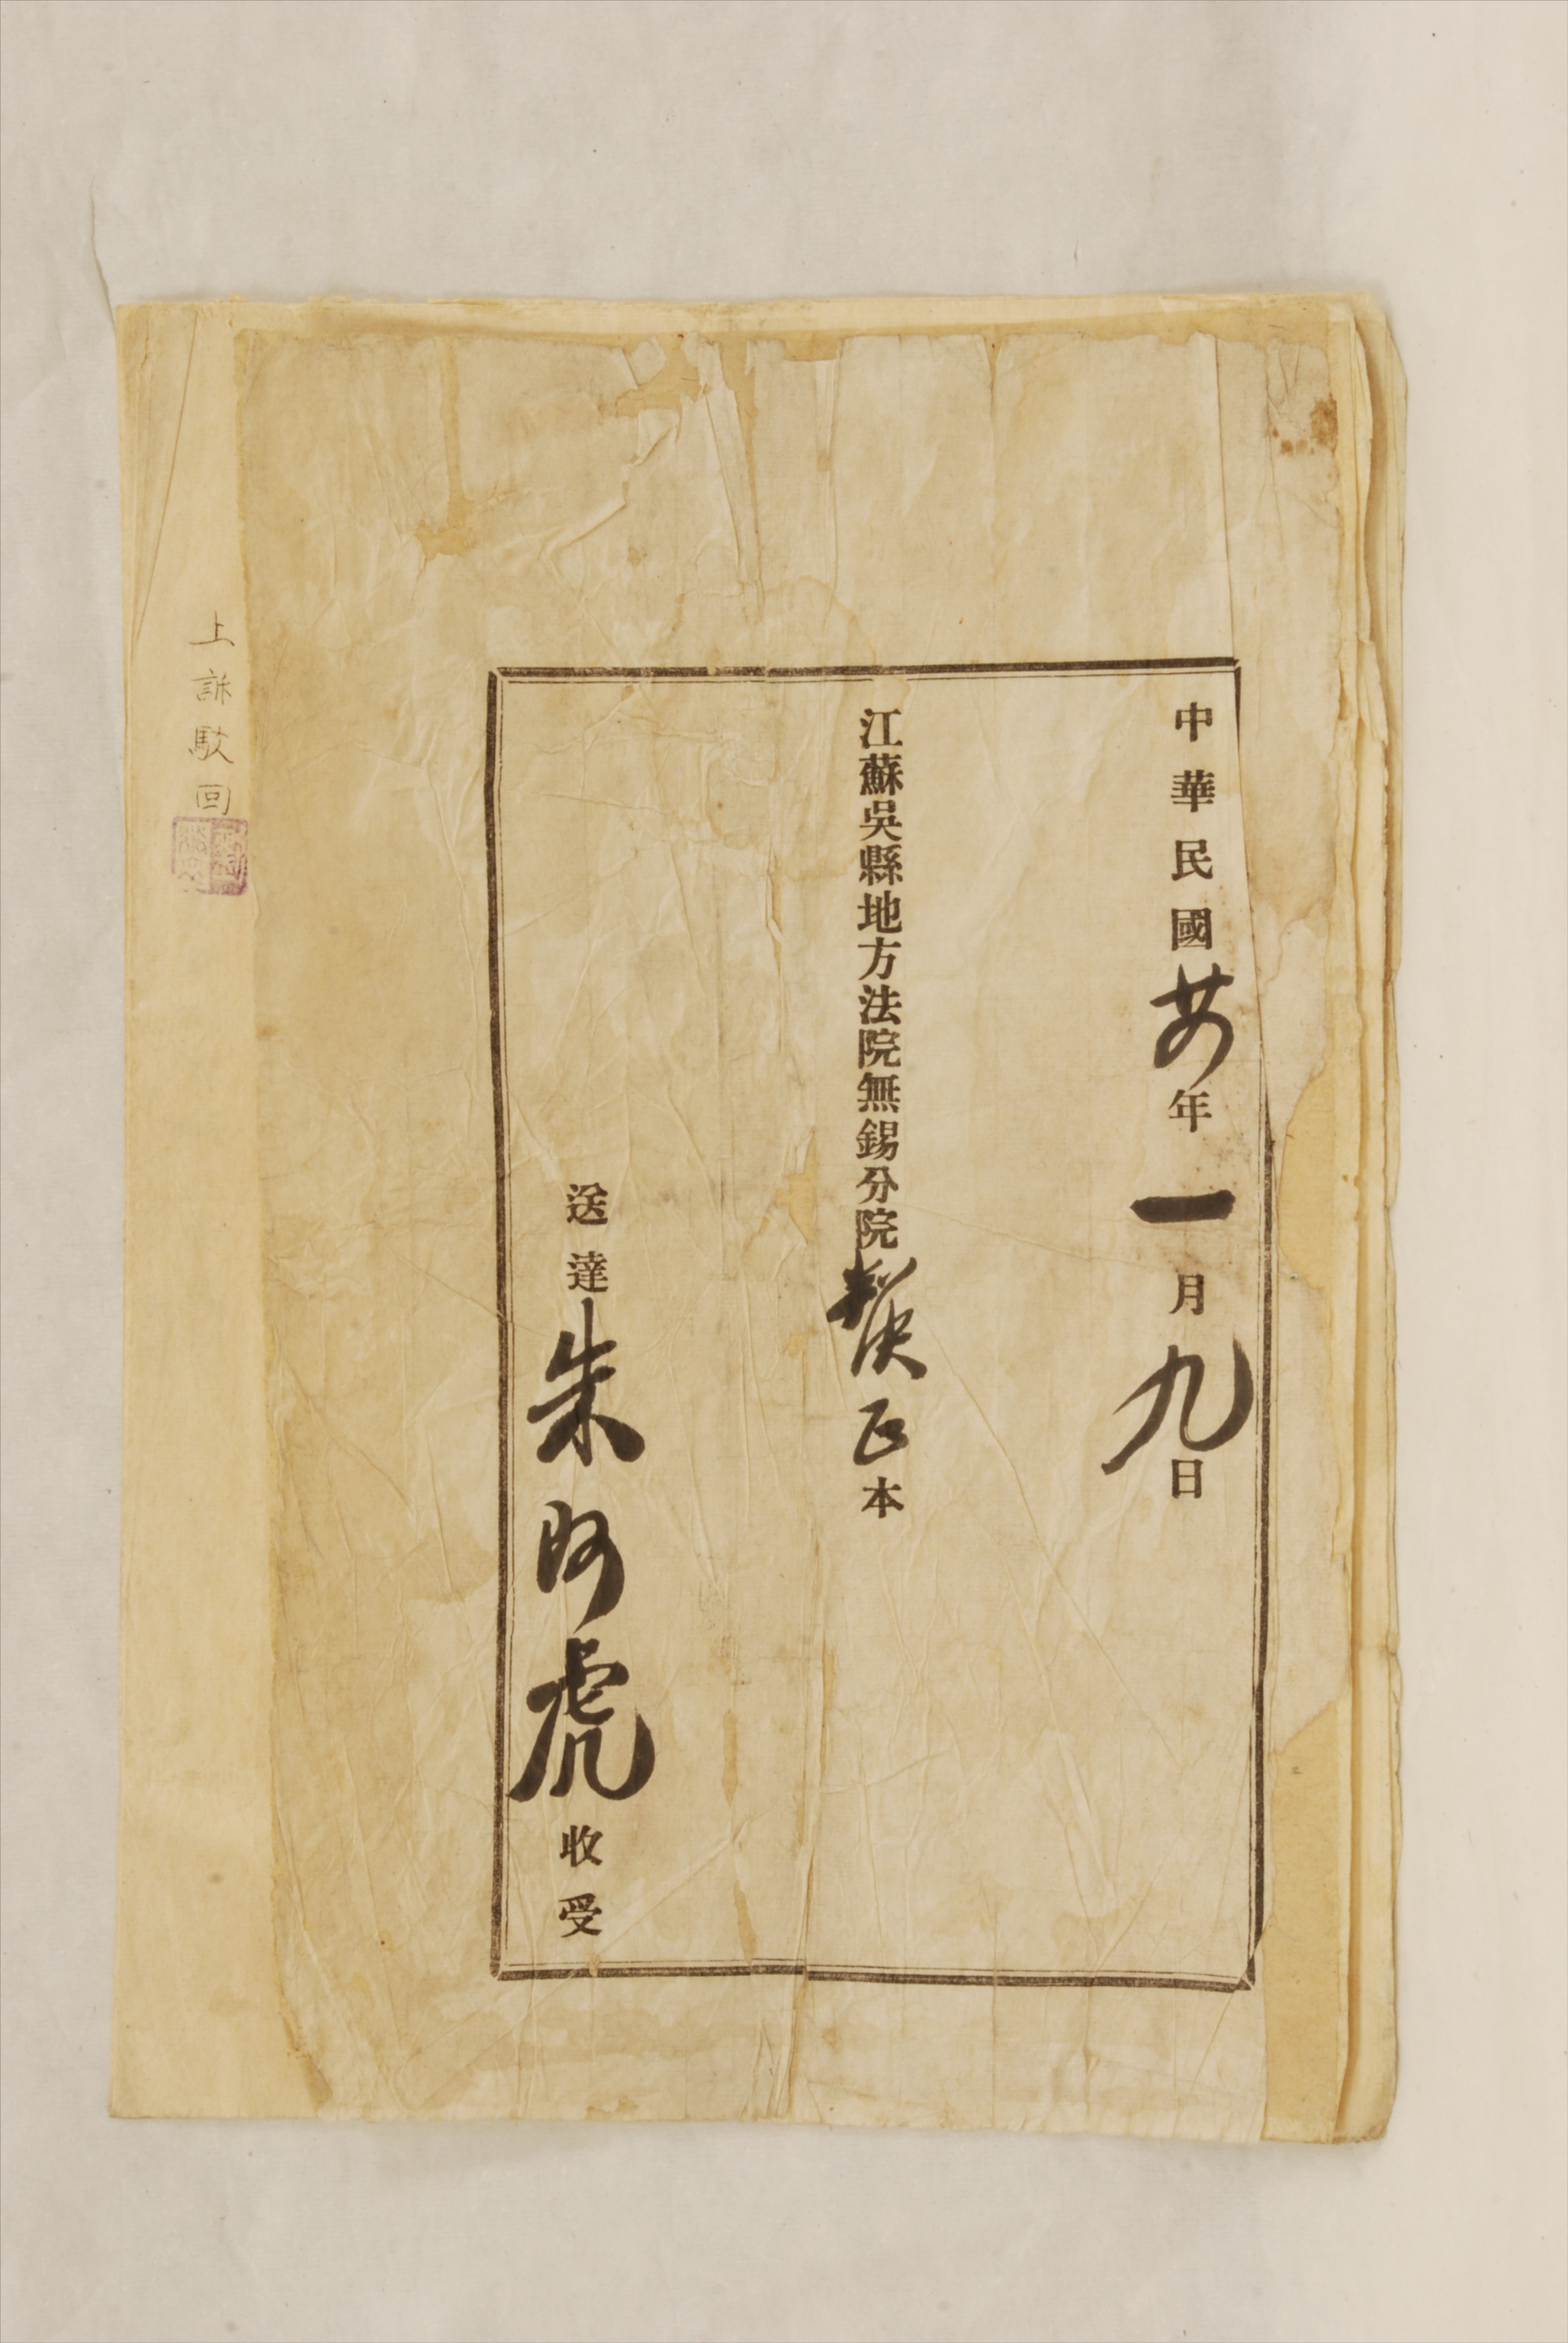 中華民國廿年一月九日
江蘇吳縣地方法院無錫分院判決正本
送達朱阿虎收受
上訴駁回